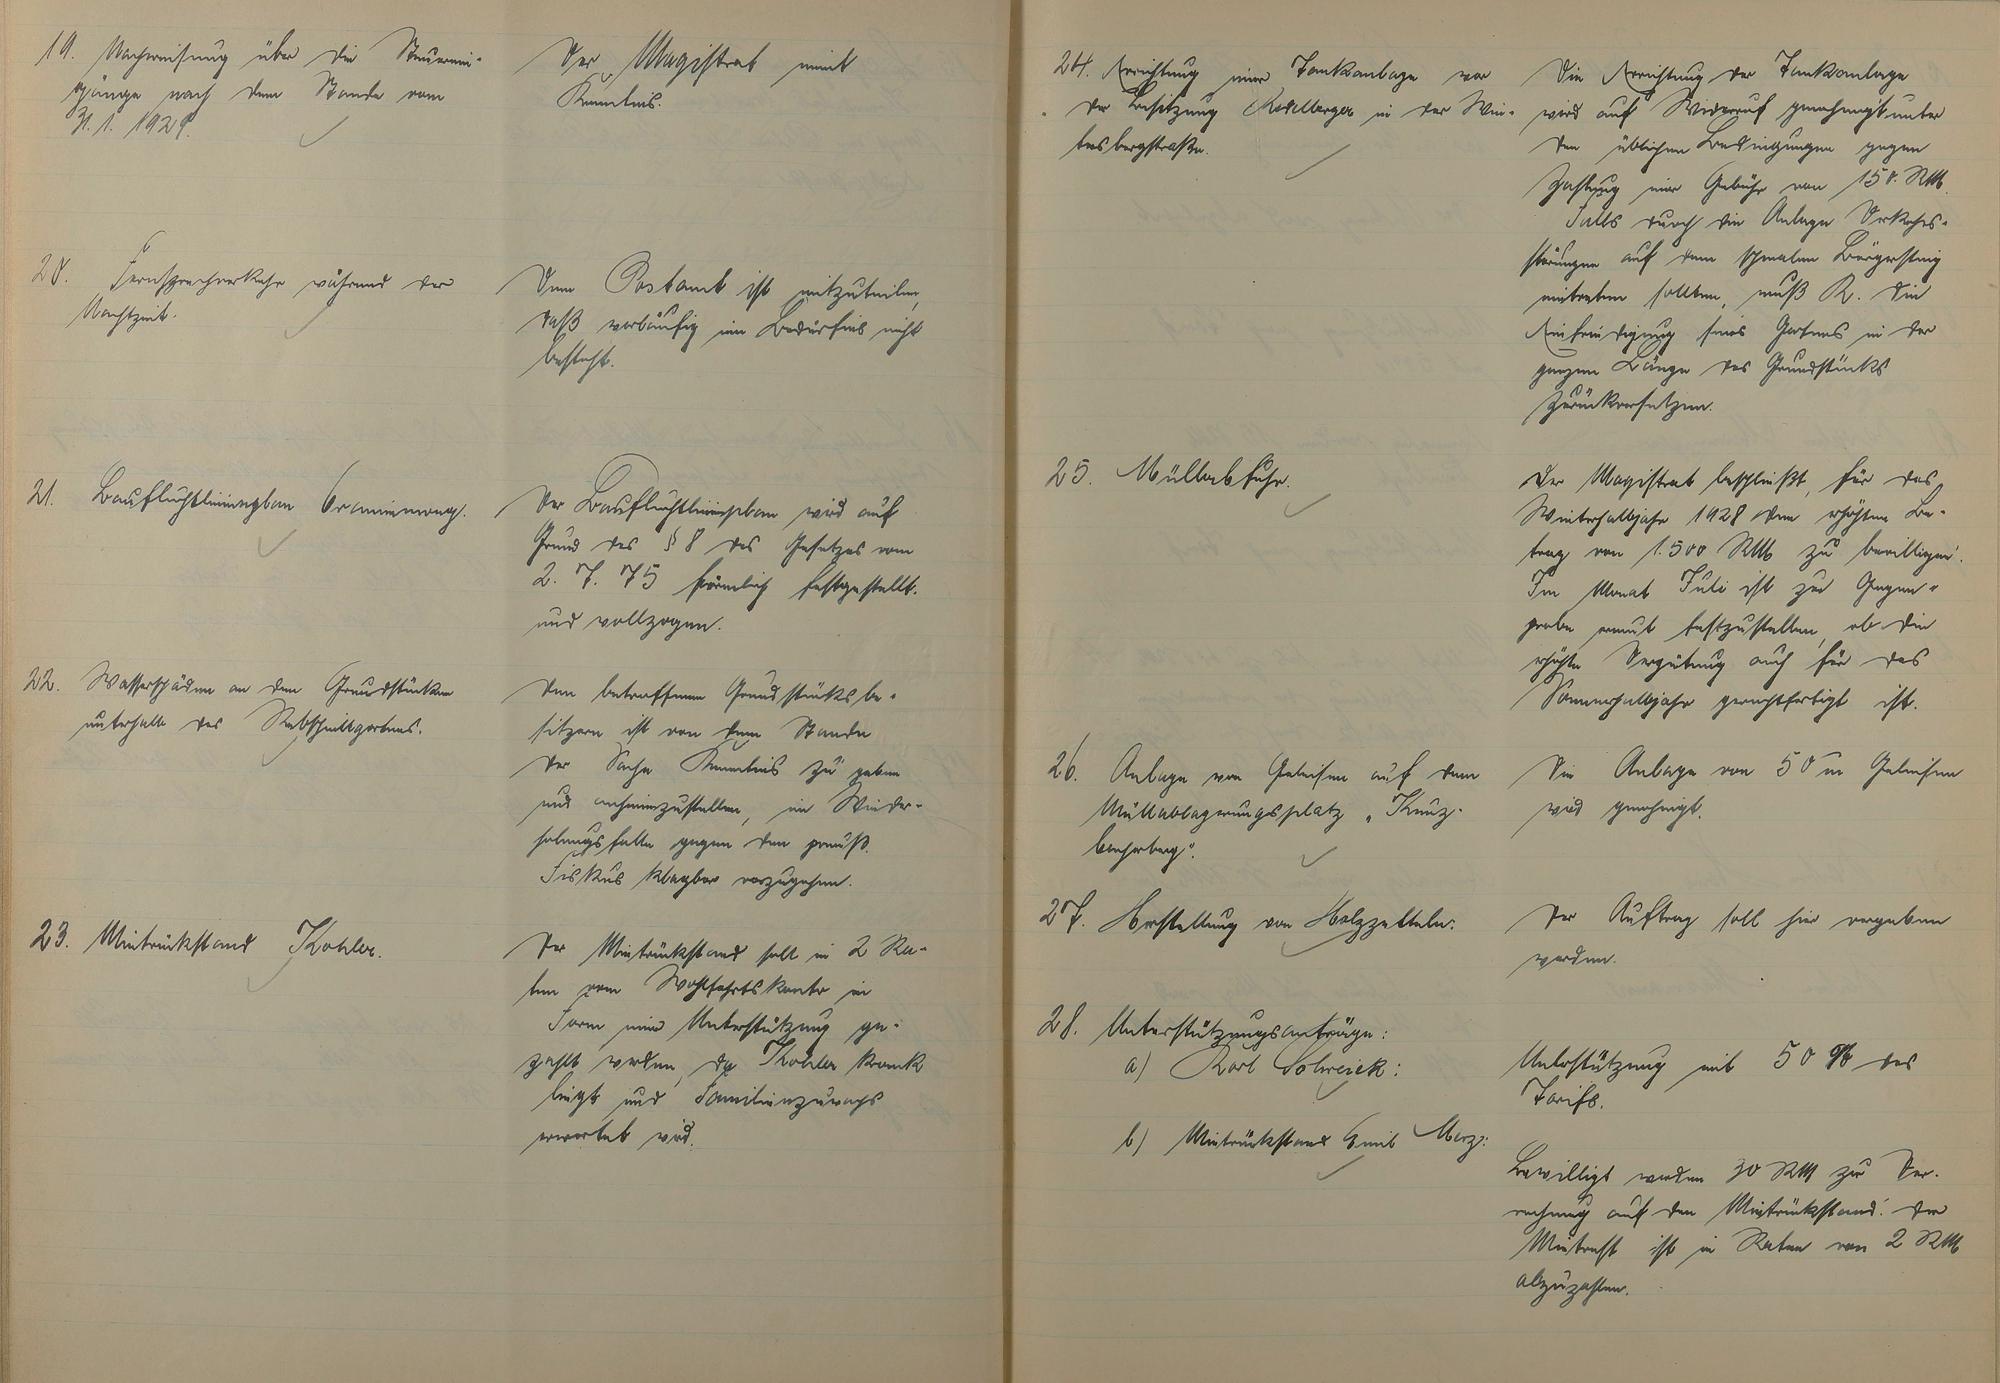 19. Nachweisung über die Steuerein-
gänge nach dem Stande vom
31. 1. 1929.
Der Magistrat nimmt
Kenntnis.
20. Fernsprechverkehr während der
Nachtzeit.
Dem Postamt ist mitzuteilen,
daß vorläufig ein Bedürfnis nicht
besteht.
21. Baufluchtlinienplan Oranienweg.
Der Baufluchtlinienplan wird auf
Grund des § 8 des Gesetzes vom
2. 7. 75 förmlich festgestellt.
und vollzogen.
22. Wasserschäden an den Grundstücken
unterhalb des Rebschnittgartens.
Den betroffenen Grundstücksbe-
sitzern ist von dem Stande
der Sache Kenntnis zu geben
und anheimzustellen, im Wieder-
holungsfalle gegen den preuß.
Fiskus klagbar vorzugehen.
23. Mietrückstand Kohler.
Der Mietrückstand soll in 2 Ra-
ten vom Wohlfahrtskonto in
Form einer Unterstützung ge-
zahlt werden, da Kohler krank
liegt und Familienzuwachs
erwartet wird.
24. Errichtung einer Tankanlage vor
der Besitzung in der Win-
tersbergstraße.
Die Errichtung der Tankanlage
wird auf Widerruf genehmigt unter
den üblichen Bedingungen gegen
Zahlung einer Gebühr von 150. RM.
Falls durch die Anlage Verkehrs-
störungen auf dem schmalen Bürgersteig
eintreten sollten, muß R. die
Einfriedigung seines Gartens in der
ganzen Länge des Grundstücks
zurückversetzen.
25. Müllabfuhr.
Der Magistrat beschließt, für das
Winterhalbjahr 1928 den erhöhten Be-
trag von 1.500 RM zu bewilligen.
Im Monat Juli ist zur Gegen-
probe erneut festzustellen, ob die
erhöhte Vergütung auch für das
Sommerhalbjahr gerechtfertigt ist.
26. Anlage von Geleisen auf dem
Müllablagerungsplatz „Kreuz-
Die Anlage von 50 m Geleisen
wird genehmigt.
27. Herstellung von Holzzetteln:
Der Auftrag soll hier vergeben
werden.
28. Unterstützungsanträge:
a) Karl
Unterstützung mit 50 % des
Tarifs.
b) Mietrückstand Emil Merz:
Bewilligt werden 30 RM zur Ver-
rechnung auf den Mietrückstand. Der
Mietrest ist in Raten von 2 RM
abzuzahlen.